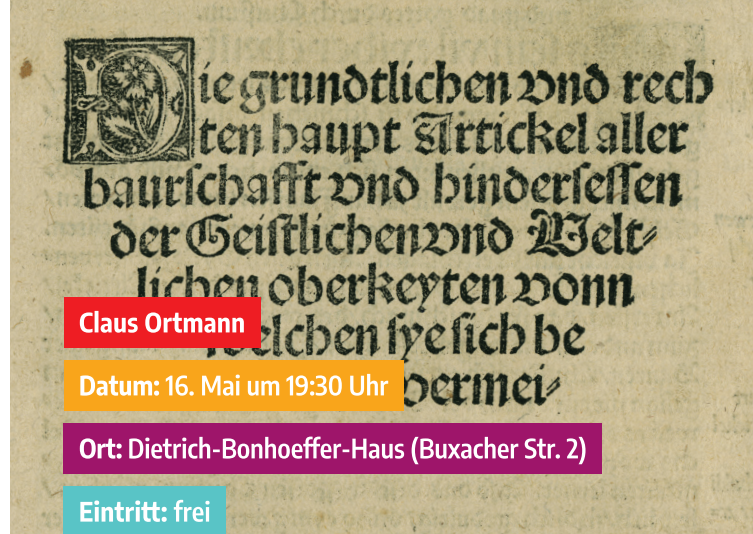 Die grundtlichen vnd rech
ten haupt Artickel aller
baurschafft vnd hindersessen
der Geistlichen vnd Welt⸗
lichen oberkeyten vonn
welchen sye sich be
vermei⸗
Claus Ortmann
Datum: 16. Mai um 19:30 Uhr
Ort: Dietrich-Bonhoeffer-Haus (Buxacher Str. 2)
Eintritt: frei